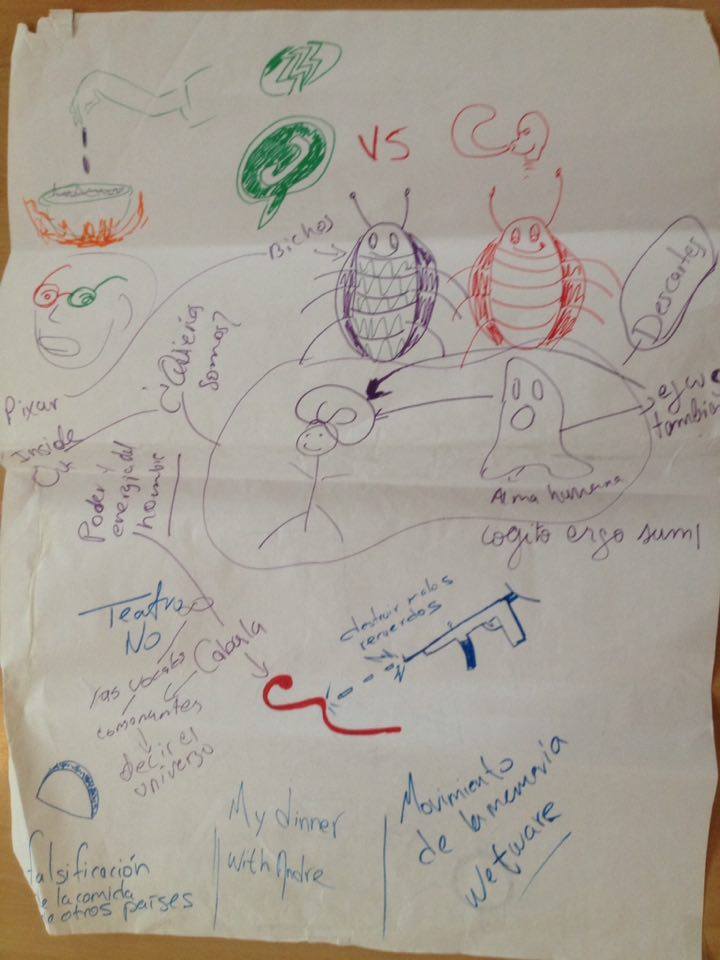 VS
Bichos
Descartes
¿Quiénes
somos?
Pixar
Inside
Ou
Poder y
energia del
hombre
también
Alma humana
cogito ergo sum
Teatro
NO
destruir malos
recuerdos
Cabala
las vocales
consonantes
decir el
universo
Movimiento
de la memoria
wetware
My dinner
with Andre
falsificación
de la comida
de otros países